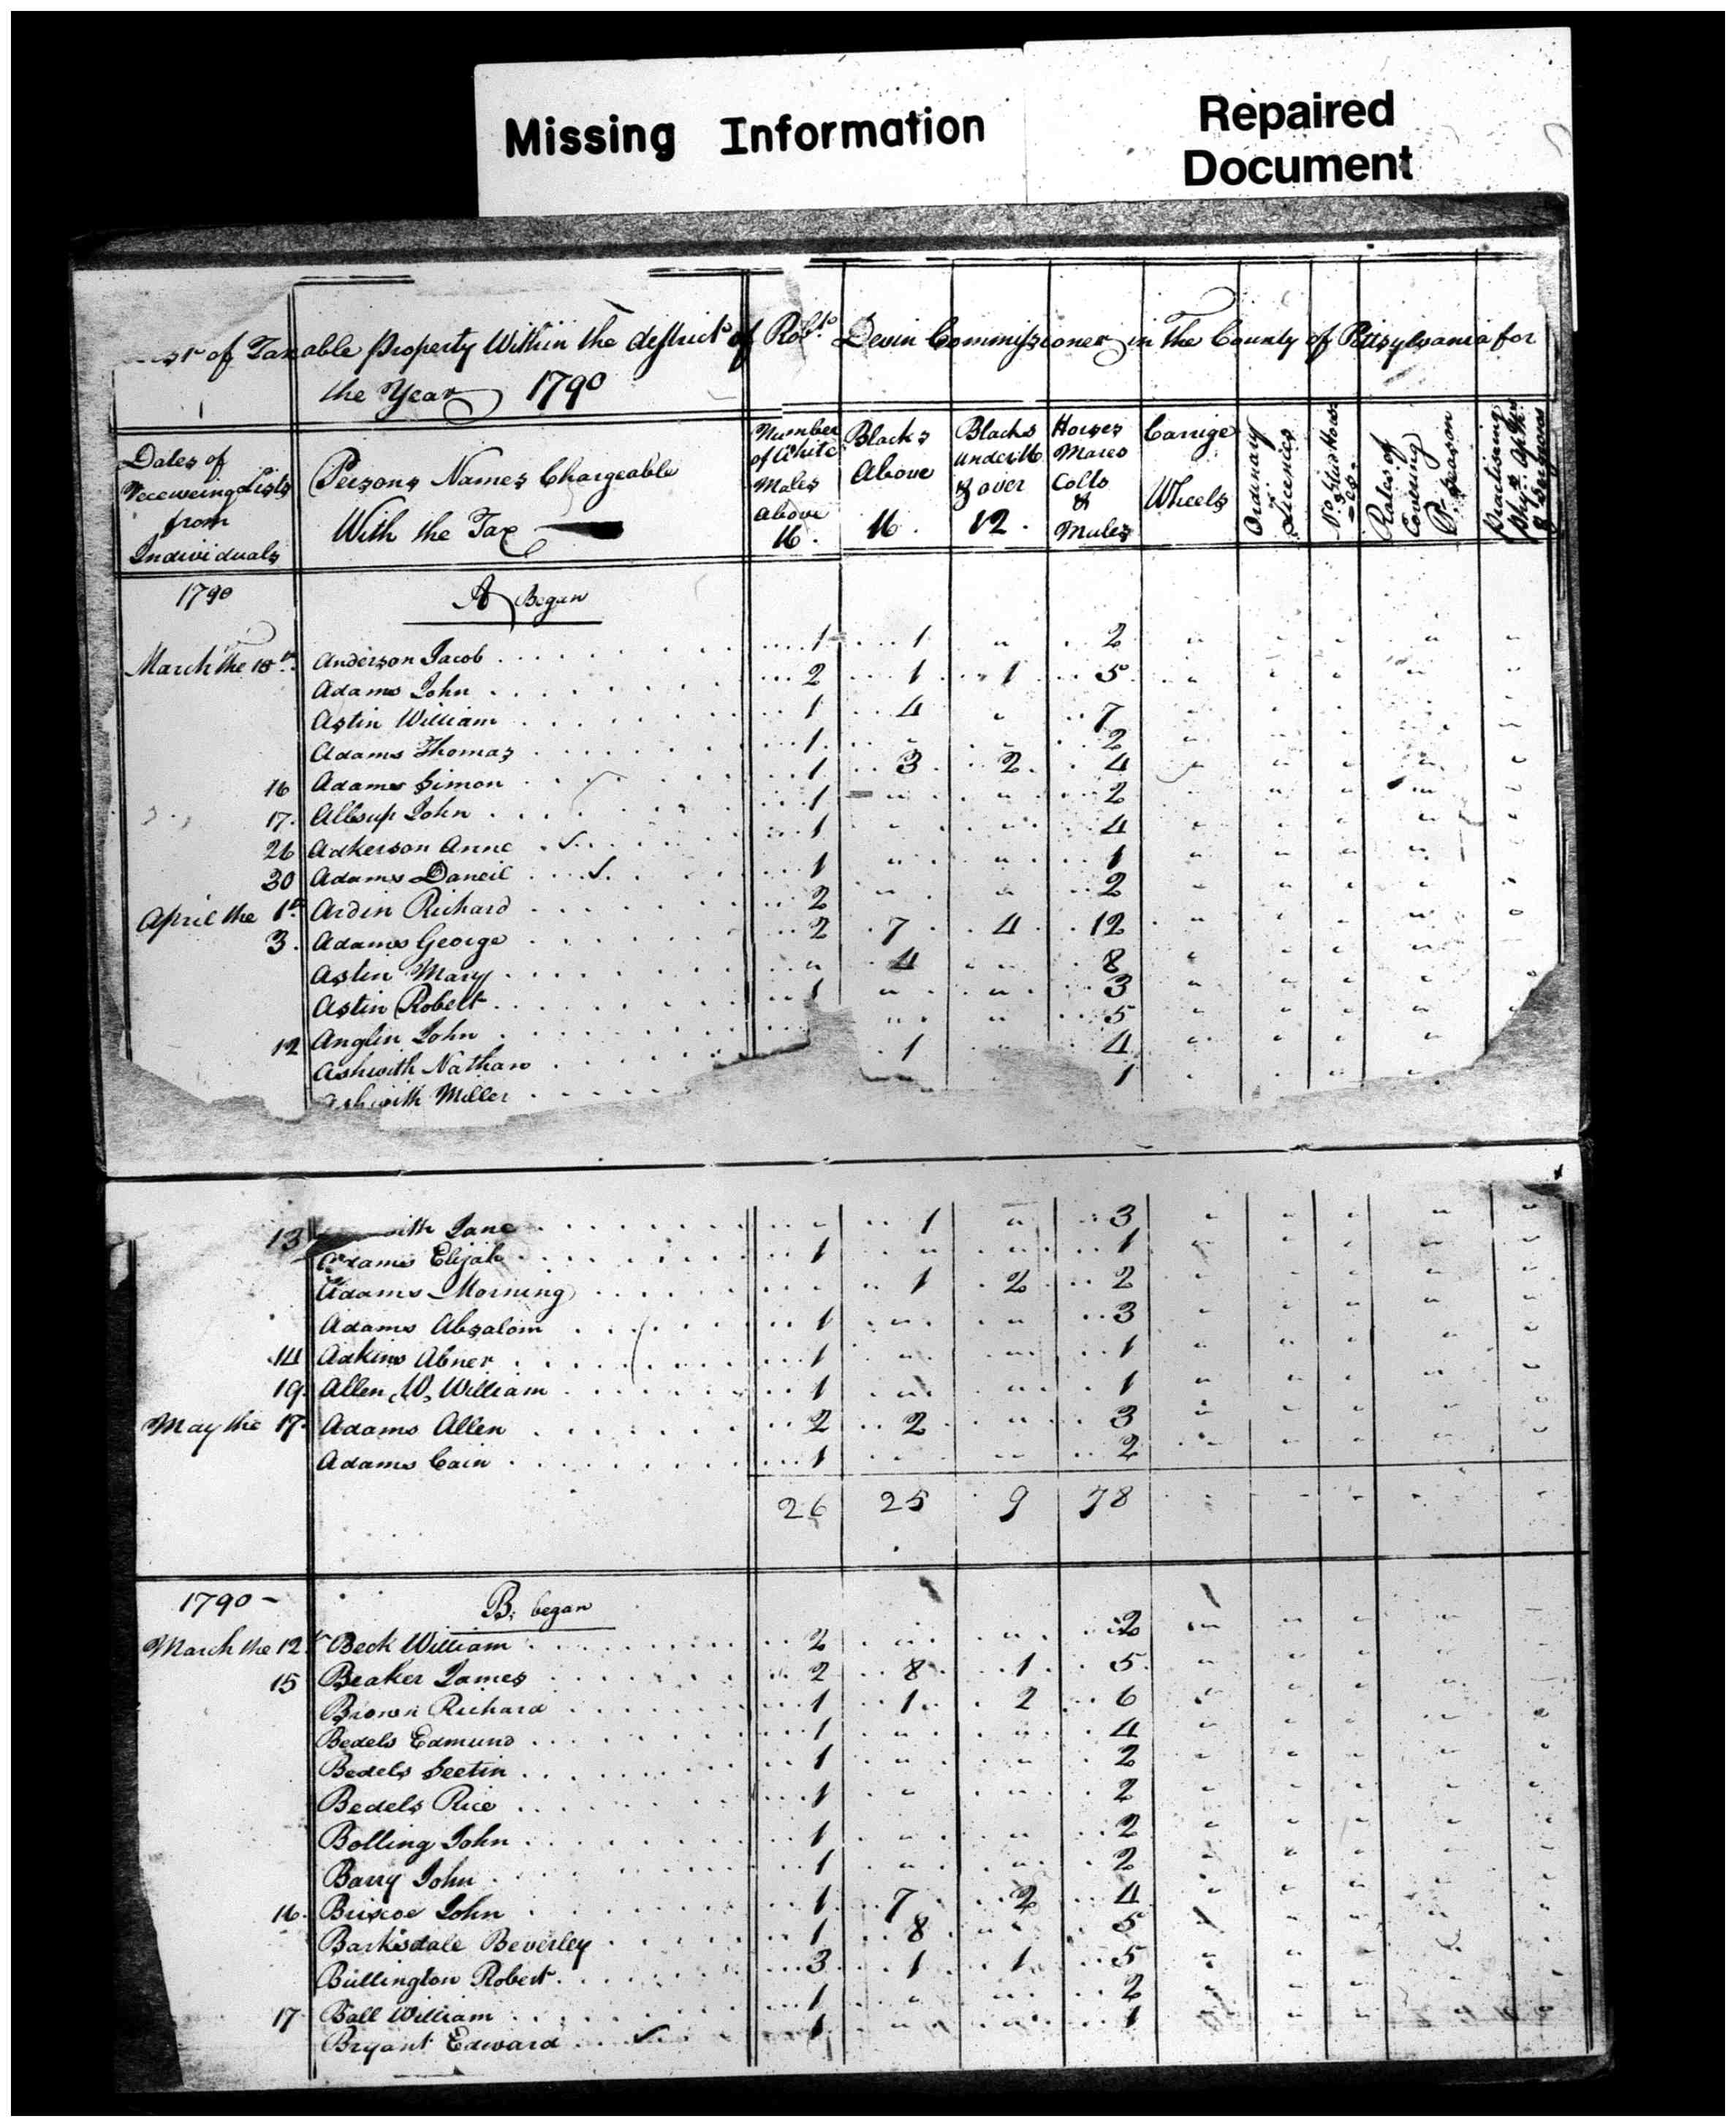 Missing Information
Repaired
Document
of Taxable Property Within the district of Robt. Devin Commissioner in the County of Pittsylvania for
the Year 1790
Dates of Receweing Lists from Individuals
Persons Names Chargeable With the Tax
Number of White Males Above 16.
Blacks Above 16.
Blacks under 16 & over 12.
Horses Mares Colts & Mules
Carrige Wheels
Ordinary Licences
No. Stud Horses
Rates of Covering Pr. Season
Practising & Surgeons
1790 A Began
March the 15th Anderson Jacob 1 1 " 2 " " " " "
Adams John 2 1 1 5 " " " " "
Astin William 1 4 " 7 " " " " "
Adams Thomas 1 " " 2 " " " " "
16 Adams Simon 1 3 2 4 " " " " "
17. Allsup John 1 " " 2 " " " " "
26 Adkerson Anne 1 " " 4 " " " " "
30 Adams Daneil 1 " " 1 " " " " "
April the 1st Ardin Richard 2 " " 2 " " " " "
3. Adams George 2 7 4 12 " " " " "
Astin Mary " 4 " 8 " " " " "
Astin Robert 1 " " 3 " " " " "
12 Anglin John " " 5 " " " " "
Ashwith Nathan 1 " 4 " " " " "
Miller 1
13 Jane " 1 " 3 " " " " "
Adams Elijah 1 " " 1 " " " " "
Adams Morning 1 2 2 " " " " "
Adams Absalom 1 " " 3 " " " " "
14 Adkins Abner 1 " " 1 " " " " "
19. Allen W. William 1 " " 1 " " " " "
May the 17. Adams Allen 2 2 " 3 " " " " "
Adams Cain 1 " " 2 " " " " "
26 25 9 78
1790 - B. began
March the 12 Beck William 2 " " 2 " " " " "
15 Beaker James 2 8 1 5 " " " " "
Brown Richard 1 1 2 6 " " " " "
Bedels Edmund 1 " " 4 " " " " "
Bedels Seetin 1 " " 2 " " " " "
Bedels Rice 1 " " 2 " " " " "
Bolling John 1 " " 2 " " " " "
Barry John 1 " " 2 " " " " "
16. Briscoe John 1 7 2 4 " " " " "
Barksdale Beverley 1 8 " 5 " " " " "
Bullington Robert 3 1 1 5 " " " " "
17 Ball William 1 " " 2 " " " " "
Bryant Edward 1 " " 1 " " "